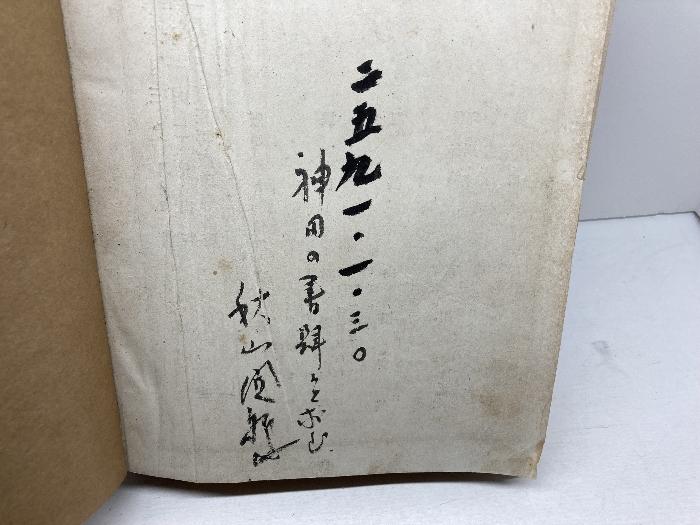 二五九一・一・三〇
神田の書肆に求む
秋山国